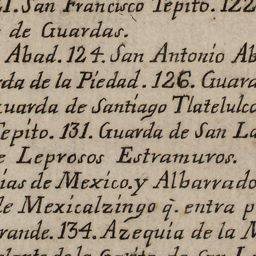 1. San Francisco Tepito. 122
de Guardas.
Abad. 124. San Antonio Ab
rda de la Piedad. 126. Guard
Guarda de Santiago Tlatelulco
Tepito. 131. Guarda de San La
e Leprosos Estramuros.
ias de Mexico. y Albarrado
de Mexicalzingo q̄. entra p
rande. 134. Azequia de la M